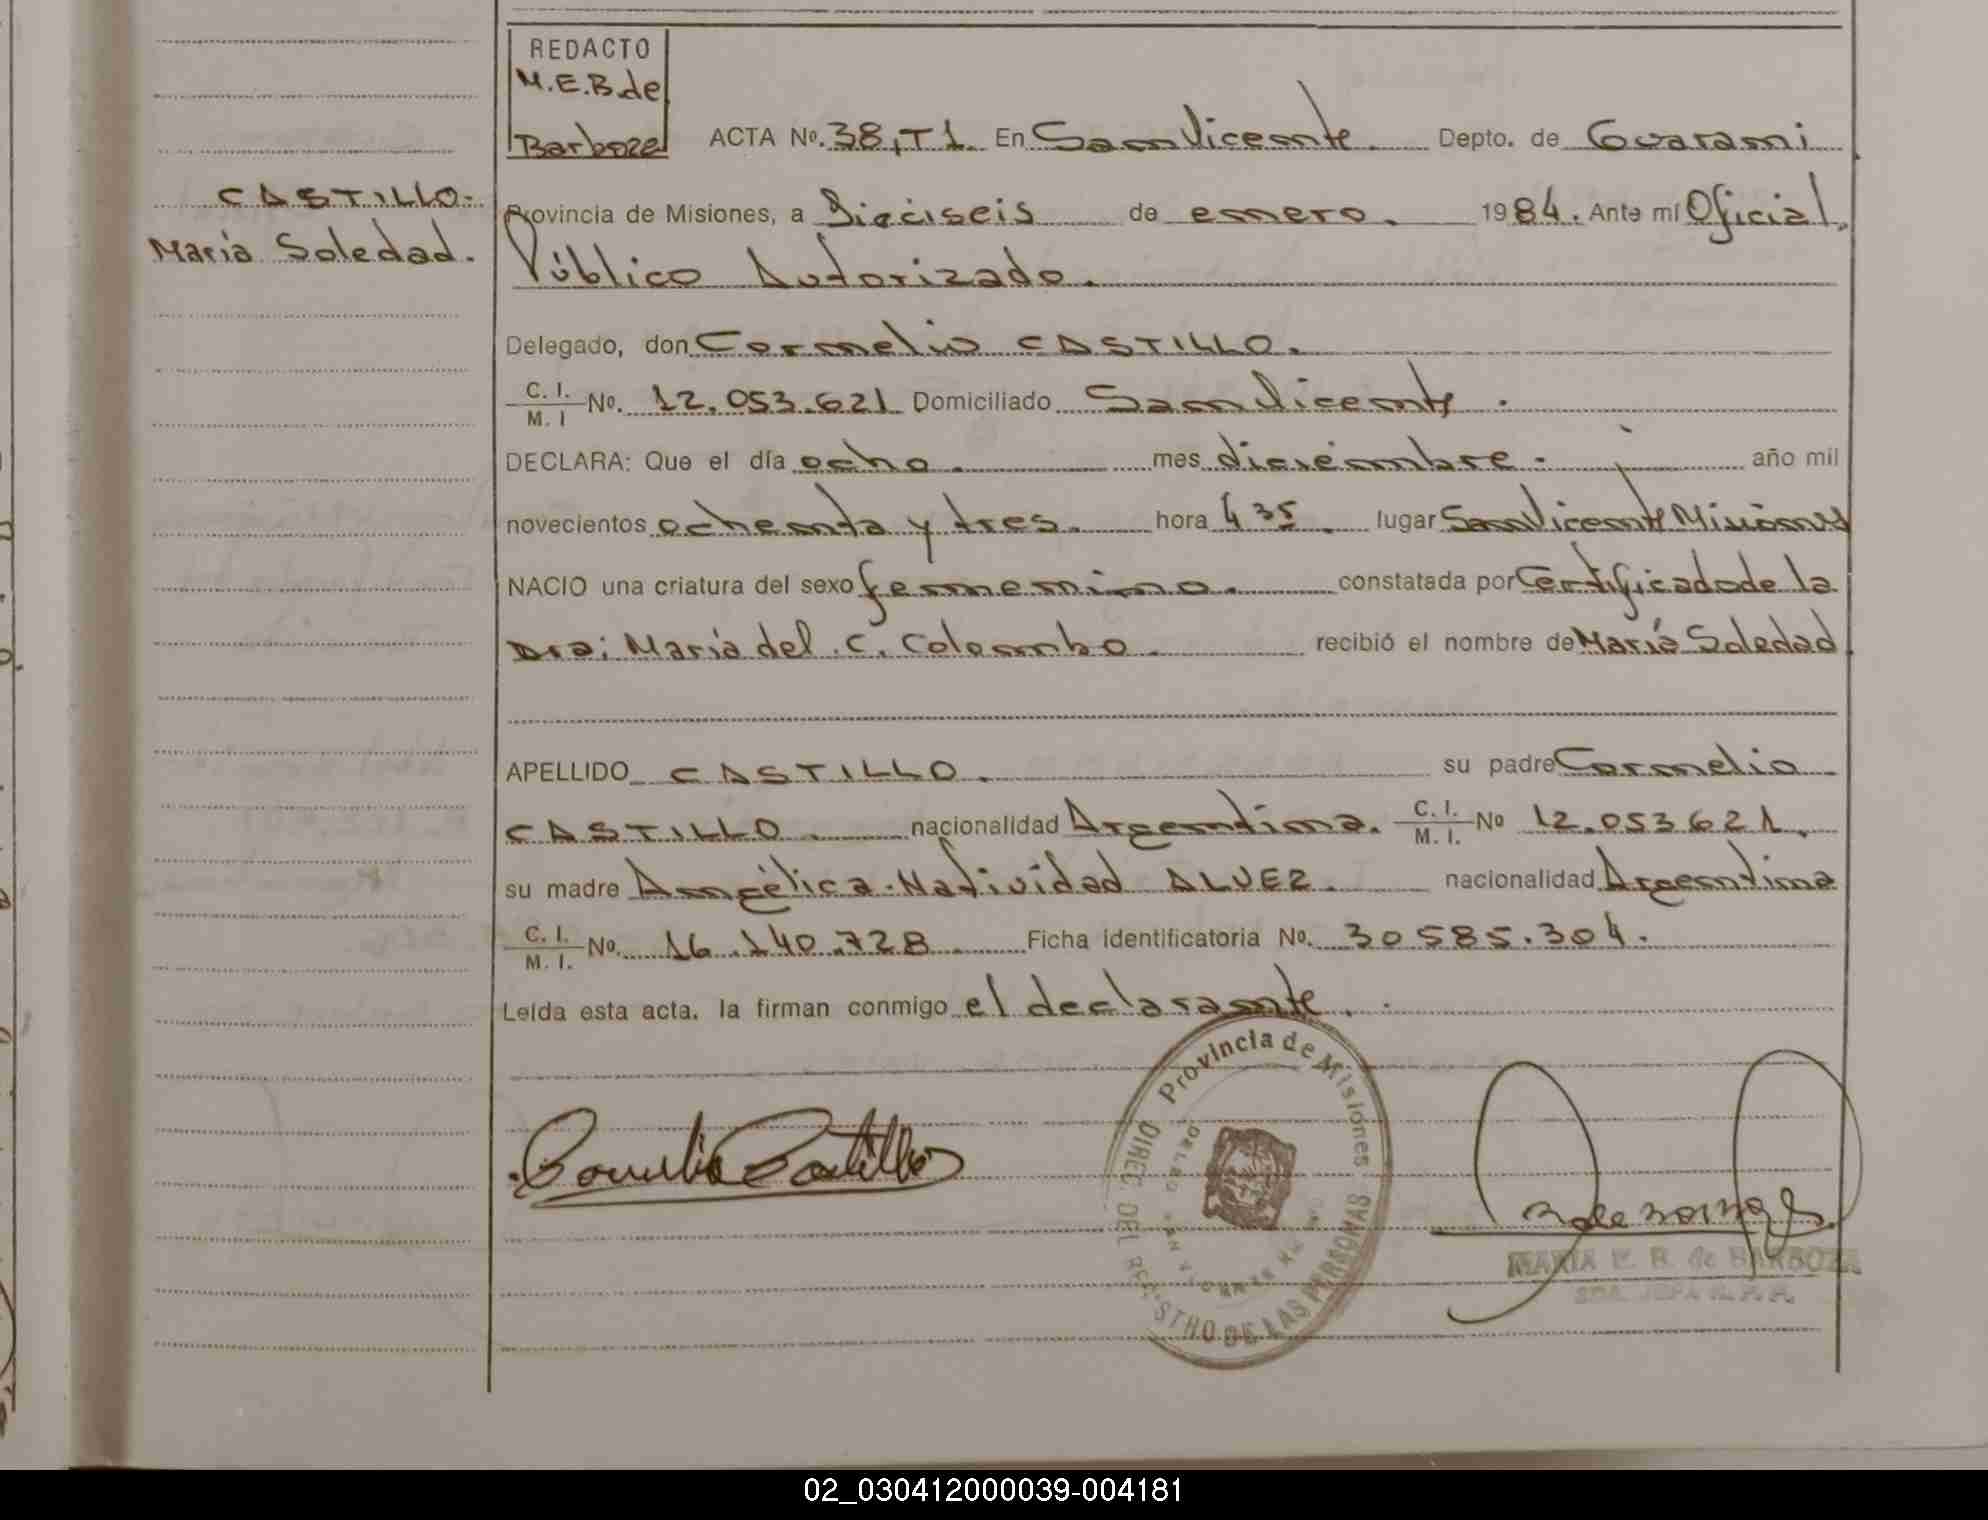 REDACTO
M.E.B. de
Barboza
ACTA Nº. 38, T1. En San Vicente. Depto. de Guaraní
CASTILLO.
María Soledad.
Provincia de Misiones, a Dieciseis de enero. 1984. Ante mí Oficial
Público Autorizado.
Delegado, don Cornelio CASTILLO.
C. I. / M. I Nº. 12.053.621 Domiciliado San Vicente.
DECLARA: Que el día ocho. mes diciembre. año mil
novecientos ochenta y tres. hora 4 35. lugar San Vicente Misiones
NACIO una criatura del sexo femenino. constatada por Certificado de la
Dra; María del C. Colombo. recibió el nombre de María Soledad
APELLIDO CASTILLO. su padre Cornelio
CASTILLO. nacionalidad Argentina. C. I. / M. I. Nº 12.053.621.
su madre Angélica Natividad ALVEZ. nacionalidad Argentina
C. I. / M. I. Nº. 16.140.728. Ficha identificatoria Nº. 30585.304.
Leída esta acta, la firman conmigo el declarante.
Cornelio Castillo
Provincia de Misiones
DIREC. DEL REGISTRO DE LAS PERSONAS
MARIA E. B. de BARBOZA
02_030412000039-004181